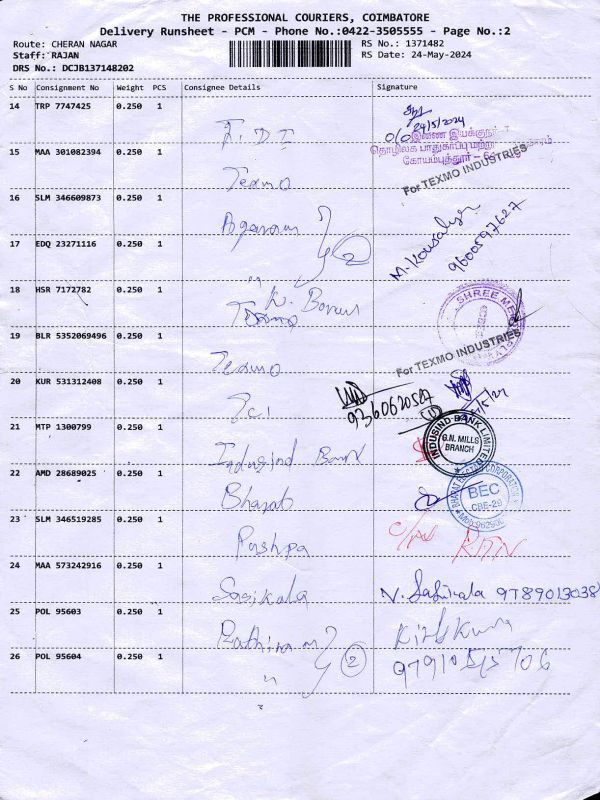 THE PROFESSIONAL COURIERS, COIMBATORE
Delivery Runsheet - PCM - Phone No.:0422-3505555 - Page No.:2
Route: CHERAN NAGAR
RS No.: 1371482
Staff: RAJAN
RS Date: 24-May-2024
DRS No.: DCJB137148202
S No Consignment No Weight PCS Consignee Details Signature
14 TRP 7747425 0.250 1
24/5/2024
தொழிலக பாதுகாப்பு மற்றும்
கோயம்புத்தூர்
15 MAA 301082394 0.250 1 Texmo
For TEXMO INDUSTRIES
16 SLM 346609873 0.250 1 2
M. Kousalya
9600597627
17 EDQ 23271116 0.250 1 "
18 HSR 7172782 0.250 1
SHREE
19 BLR 5352069496 0.250 1 Texmo
For TEXMO INDUSTRIES
20 KUR 531312408 0.250 1
9360620527
21 MTP 1300799 0.250 1 Indusind Bank
INDUSIND BANK LIMITED
G.N. MILLS
BRANCH
22 AMD 28689025 0.250 1 Bharat
BEC
CBE-29
23 SLM 346519285 0.250 1 Pushpa
24 MAA 573242916 0.250 1 Sasikala N. Sasikala 9789013038
25 POL 95603 0.250 1 2
26 POL 95604 0.250 1 "